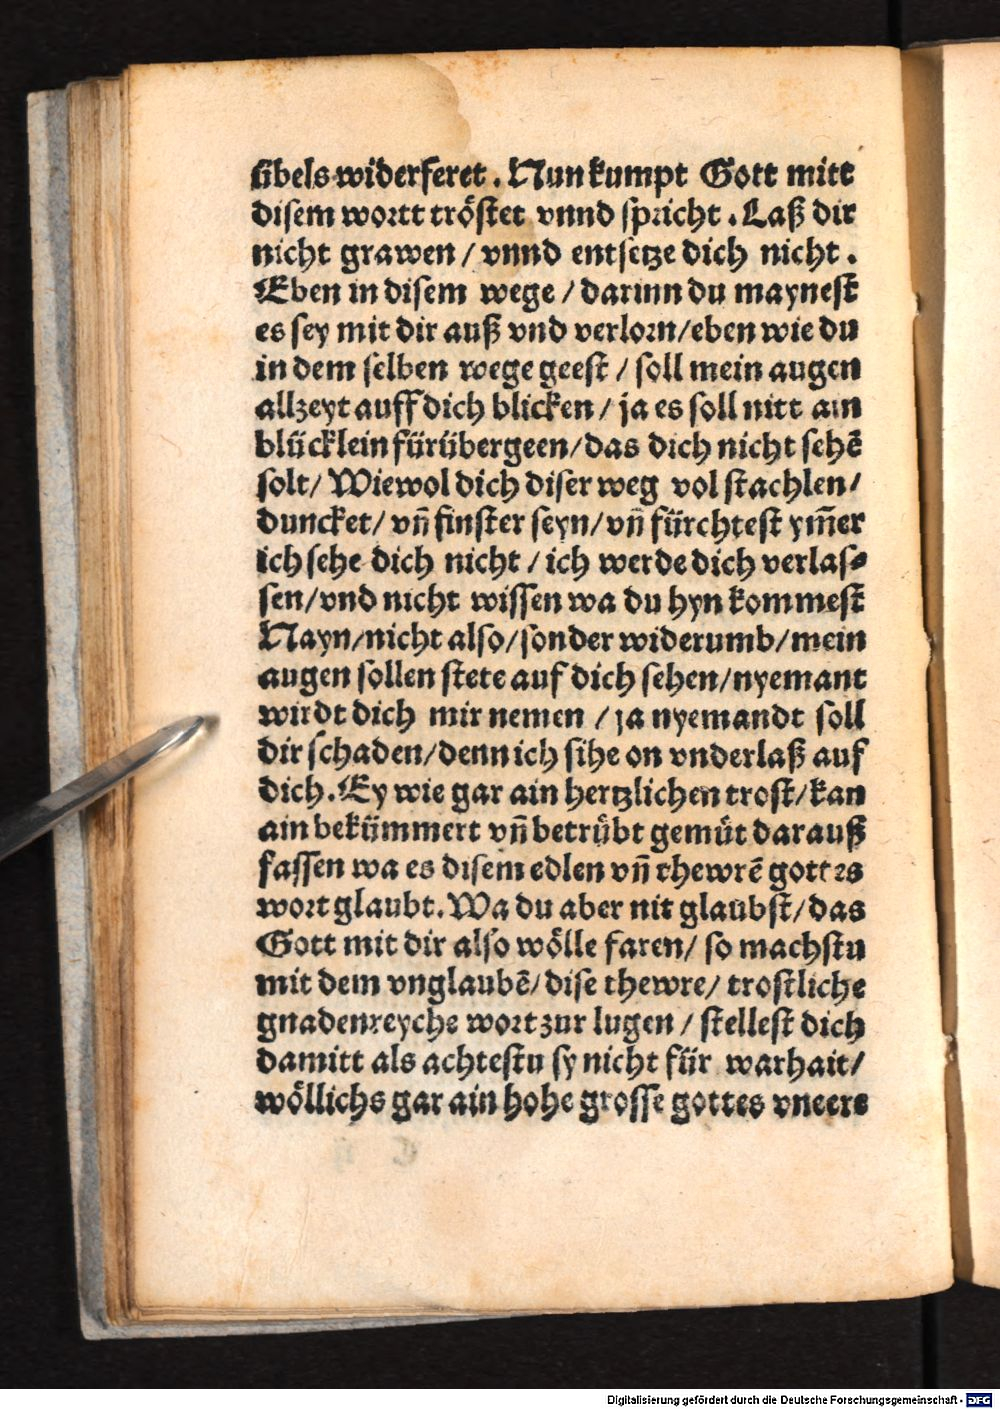 übels widerferet. Nun kumpt Gott mitt
disem wortt tröstet vnnd spricht. Laß dir
nicht grawen / vnnd entsetze dich nicht.
Eben in disem wege / darinn du maynest
es sey mit dir auß vnd verlorn/eben wie du
in dem selben wege geest / soll mein augen
allzeyt auff dich blicken / ja es soll nitt ain
blücklein fürübergeen/das dich nicht sehē
solt/ Wiewol dich diser weg vol stachlen/
duncket/ vn̄ finster seyn/vn̄ fürchtest ym̄er
ich sehe dich nicht / ich werde dich verlas⸗
sen/vnd nicht wissen wa du hyn kommest
Nayn/nicht also/sonder widerumb/mein
augen sollen stete auf dich sehen/nyemant
wirdt dich mir nemen / ja nyemandt soll
dir schaden/denn ich sihe on vnderlaß auf
dich. Ey wie gar ain hertzlichen trost/kan
ain bekümmert vn̄ betrübt gemüt darauß
fassen wa es disem edlen vn̄ thewrē gottes
wort glaubt. Wa du aber nit glaubst/das
Gott mit dir also wölle faren/ so machstu
mit dem vnglaubē/dise thewre/ trostliche
gnadenreyche wort zur lugen / stellest dich
damitt als achtestu sy nicht für warhait/
wöllichs gar ain hohe grosse gottes vneere
Digitalisierung gefördert durch die Deutsche Forschungsgemeinschaft - DFG